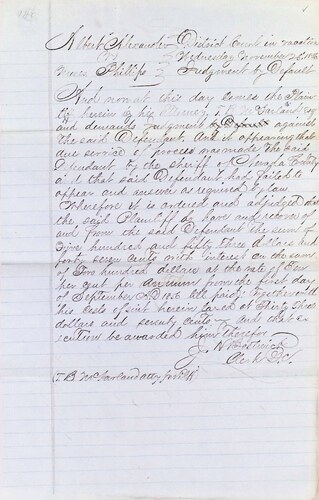 Albert Alexander } District Court in vacation
vs } Wednesday November 26 1856
Phillips } Judgment by Default
And now at this day comes the Plain
tiff herein by his Attorney T. B. McFarland Esq
and demands judgment by Default against
the said Defendant. And it appearing that
due service of process was made the said
Defendant by the Sheriff of Nevada County
and that said Defendant had failed to
appear and answer as required by law
Therefore it is ordered and adjudged that
the said Plaintiff do have and recover of
and from the said Defendant the sum of
Five hundred and fifty three dollars and
forty seven cents with interest on the sum
of Five hundred dollars at the rate of Ten
per cent per Annum from the first day
of September A.D. 1856 till paid, together with
his costs of suit herein taxed at three
dollars and seventy cents and that ex
ecution be awarded him therefor
Clerk D.C.
T. B. McFarland atty for Plff